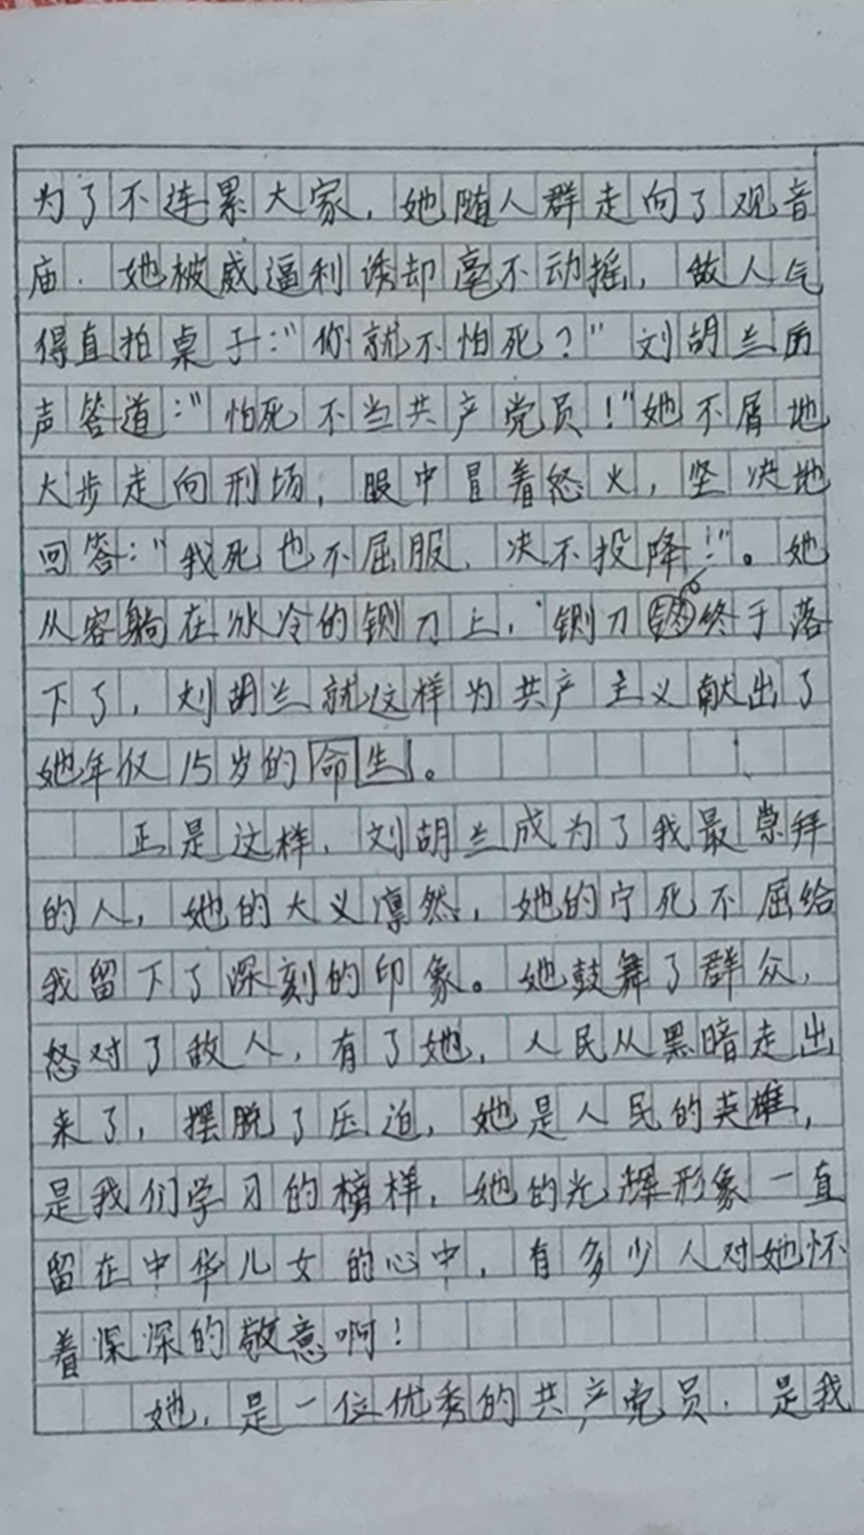 为了不连累大家，她随人群走向了观音
庙．她被威逼利诱却毫不动摇，敌人气
得直拍桌子："你就不怕死？"刘胡兰历
声答道："怕死不当共产党员！"她不屑地
大步走向刑场，眼中冒着怒火，坚决地
回答："我死也不屈服，决不投降！"。她
从容躺在冰冷的铡刀上，铡刀终于落
下了，刘胡兰就这样为共产主义献出了
她年仅15岁的命生。
正是这样，刘胡兰成为了我最崇拜
的人，她的大义凛然，她的宁死不屈给
我留下了深刻的印象。她鼓舞了群众，
怒对了敌人，有了她，人民从黑暗走出
来了，摆脱了压迫，她是人民的英雄，
是我们学习的榜样，她的光辉形象一直
留在中华儿女的心中，有多少人对她怀
着深深的敬意啊！
她，是一位优秀的共产党员．是我